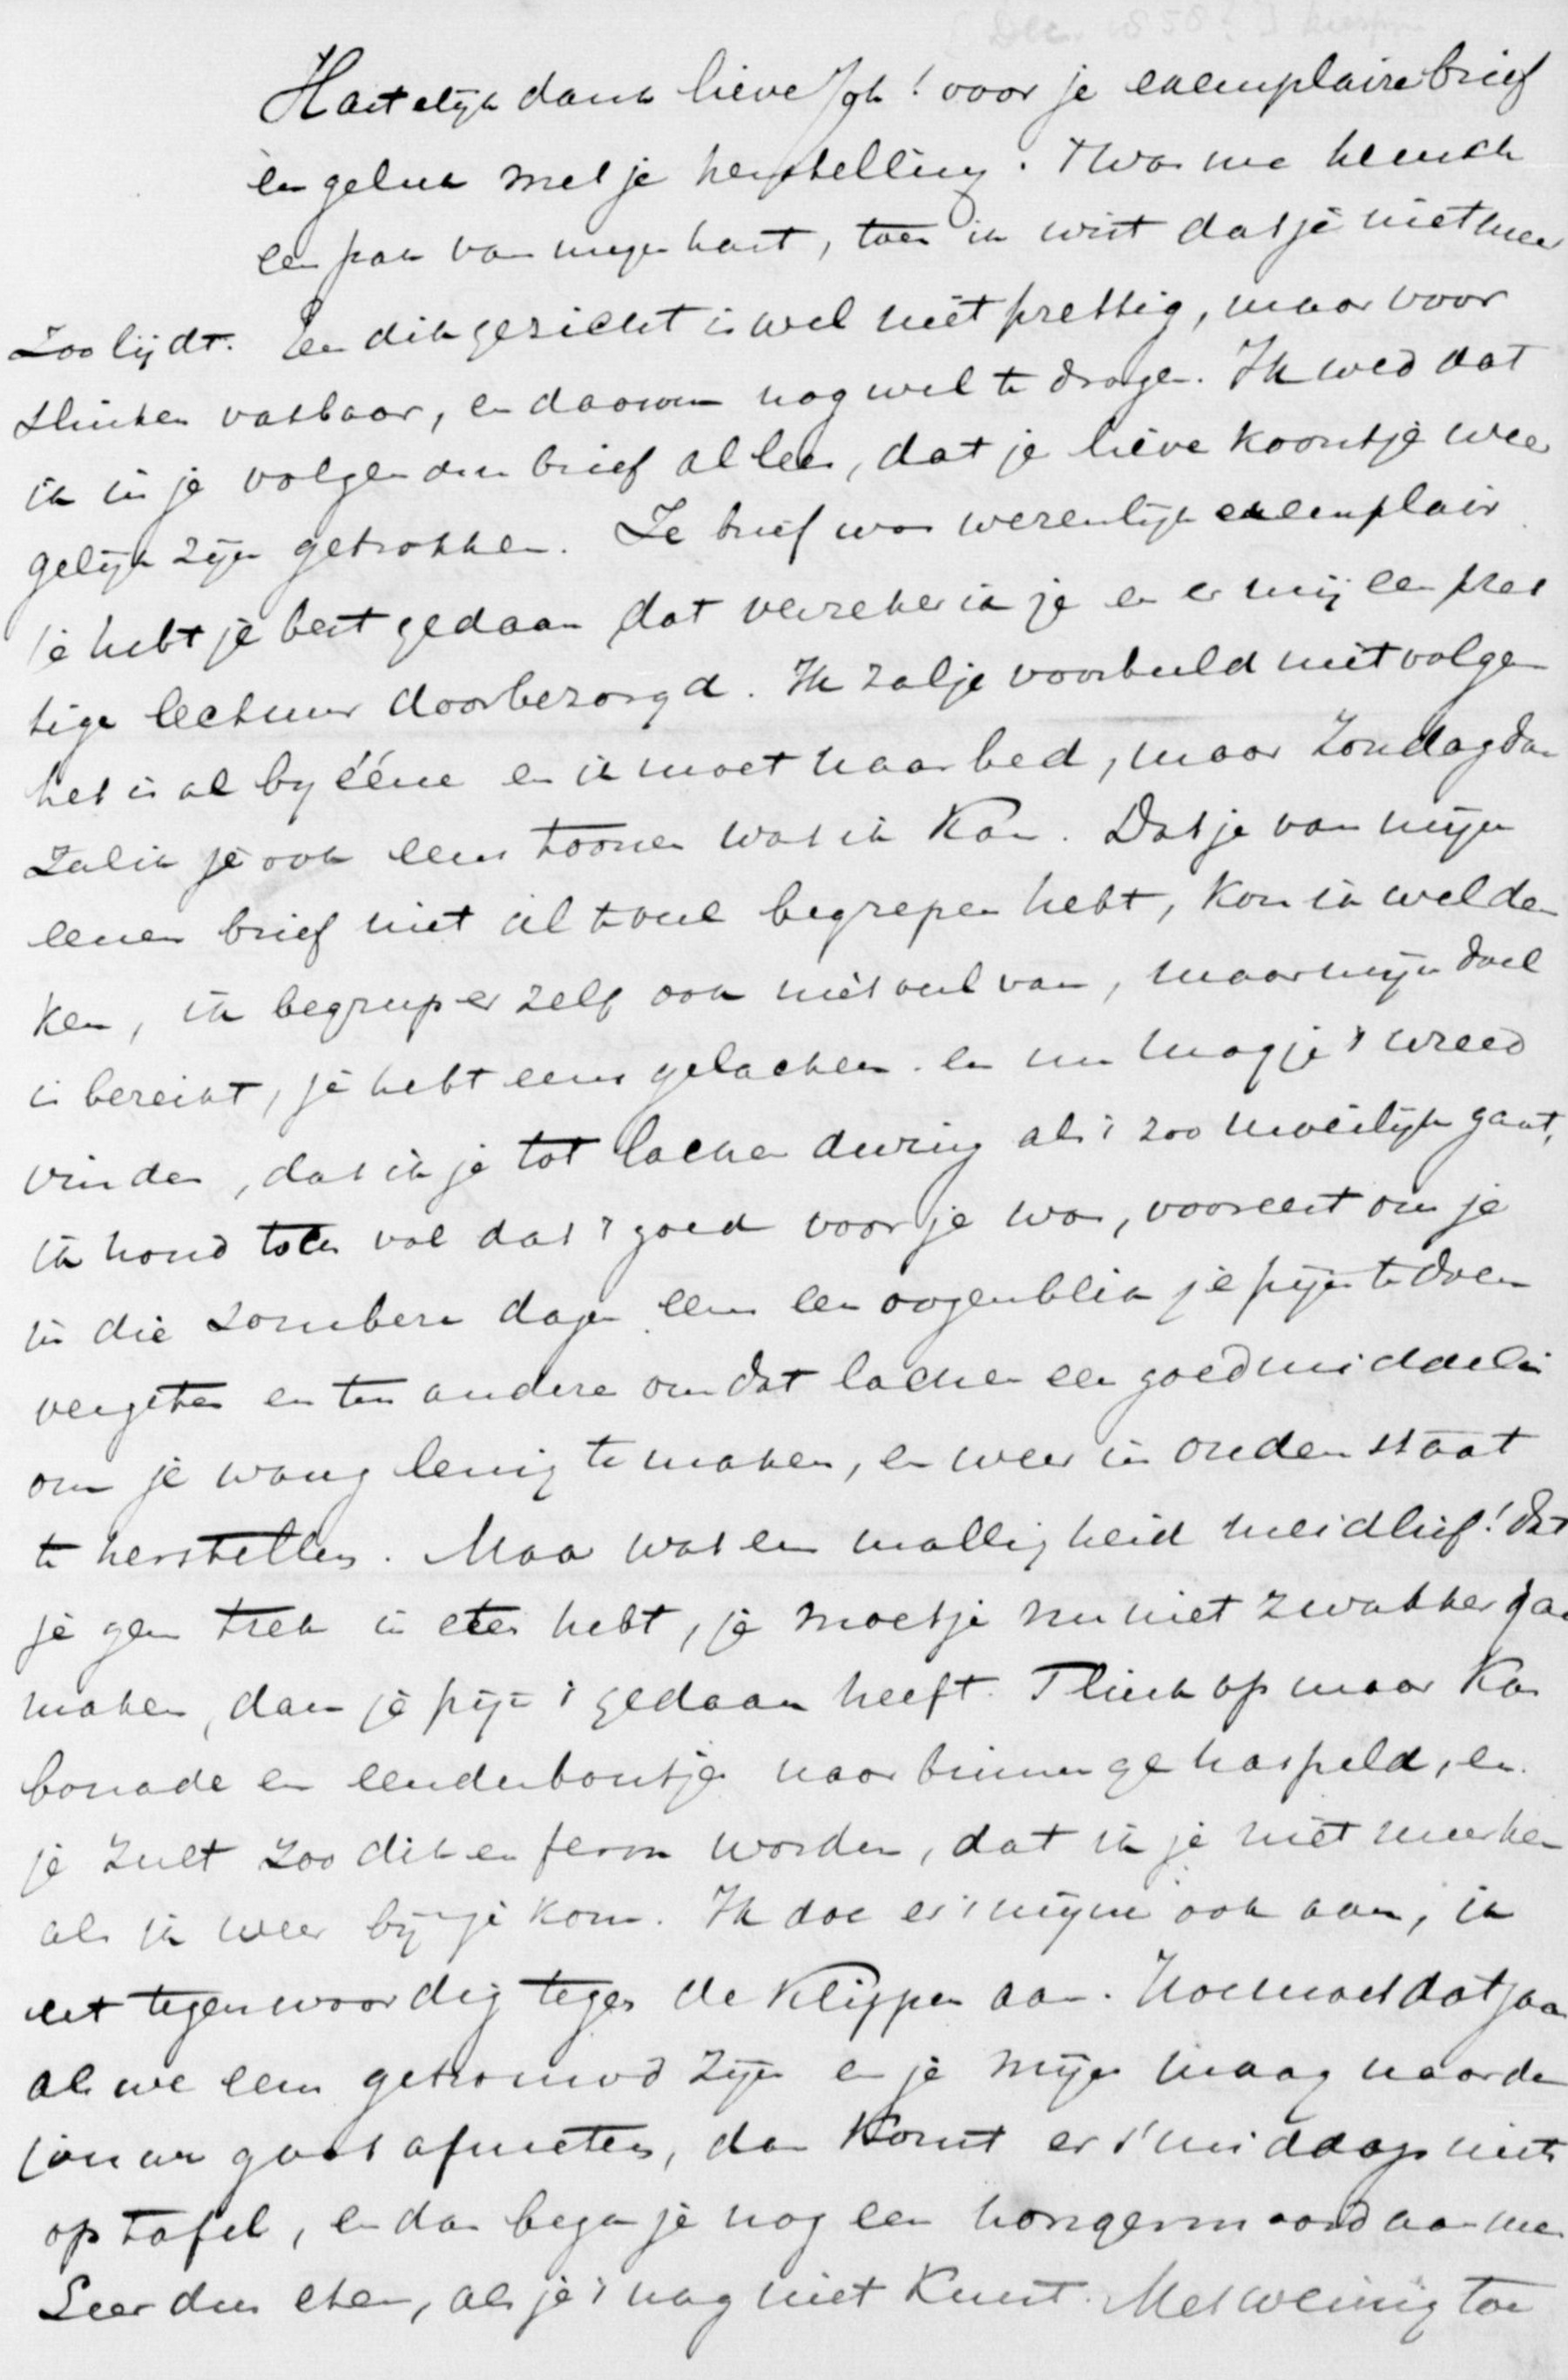 [Dec. 1858?]
Hartelijk dank lieve Joh! voor je exemplaire brief
en geluk met je herstelling. 't Was me heusch
een pak van mijn hart, toen ik wist dat je niet meer
zoo lijdt. Een dik gezicht is wel niet prettig, maar voor
slinken vatbaar, en daarom nog wel te dragen. Ik wed dat
ik in je volgenden brief al lees, dat je lieve koontje weer
gelijk zijn getrokken. Je brief was wezenlijk exemplair
je hebt je best gedaan dat verzeker ik je en er mij een pret
tige lectuur door bezorgd. Ik zal je voorbeeld niet volgen
het is al by ééne en ik moet naar bed, maar Zondag dan
zal ik je ook eens toonen wat ik kan. Dat je van mijn
eenen brief niet al te veel begrepen hebt, kon ik wel den
ken, ik begreep er zelf ook niet veel van, maar mijn doel
is bereikt, je hebt eens gelachen. en nu mag je 't wreed
vinden, dat ik je tot lachen dwing als 't zoo moeilijk gaat,
ik houd toch vol dat 't goed voor je was, vooreerst om je
in die sombere dagen eens een oogenblik je pijn te doen
vergeten en ten andere omdat lachen een goed middel is
om je wang lenig te maken, en weer in ouden staat
te herstellen. Maar wat een malligheid meidlief! dat
je geen trek in eten hebt, je moet je nu niet zwakker gaan
maken, dan je pijn 't gedaan heeft. Flink op maar kar
bonade en eendenboutjes naar binnen gehaspeld, en
je zult zoo dik en ferm worden, dat ik je niet meer ken
als ik weer bij je kom. Ik doe er 't mijne ook aan, ik
eet tegenwoordig tegen de klippen aan. Hoe moet dat gaan
als we eens getrouwd zijn en je mijn maag naar de
jouwe gaat afmeten, dan komt er 's middags niets
op tafel, en dan bega je nog een hongermoord aan me
Leer dus eten, als je 't nog niet kunt. Met weinig toe